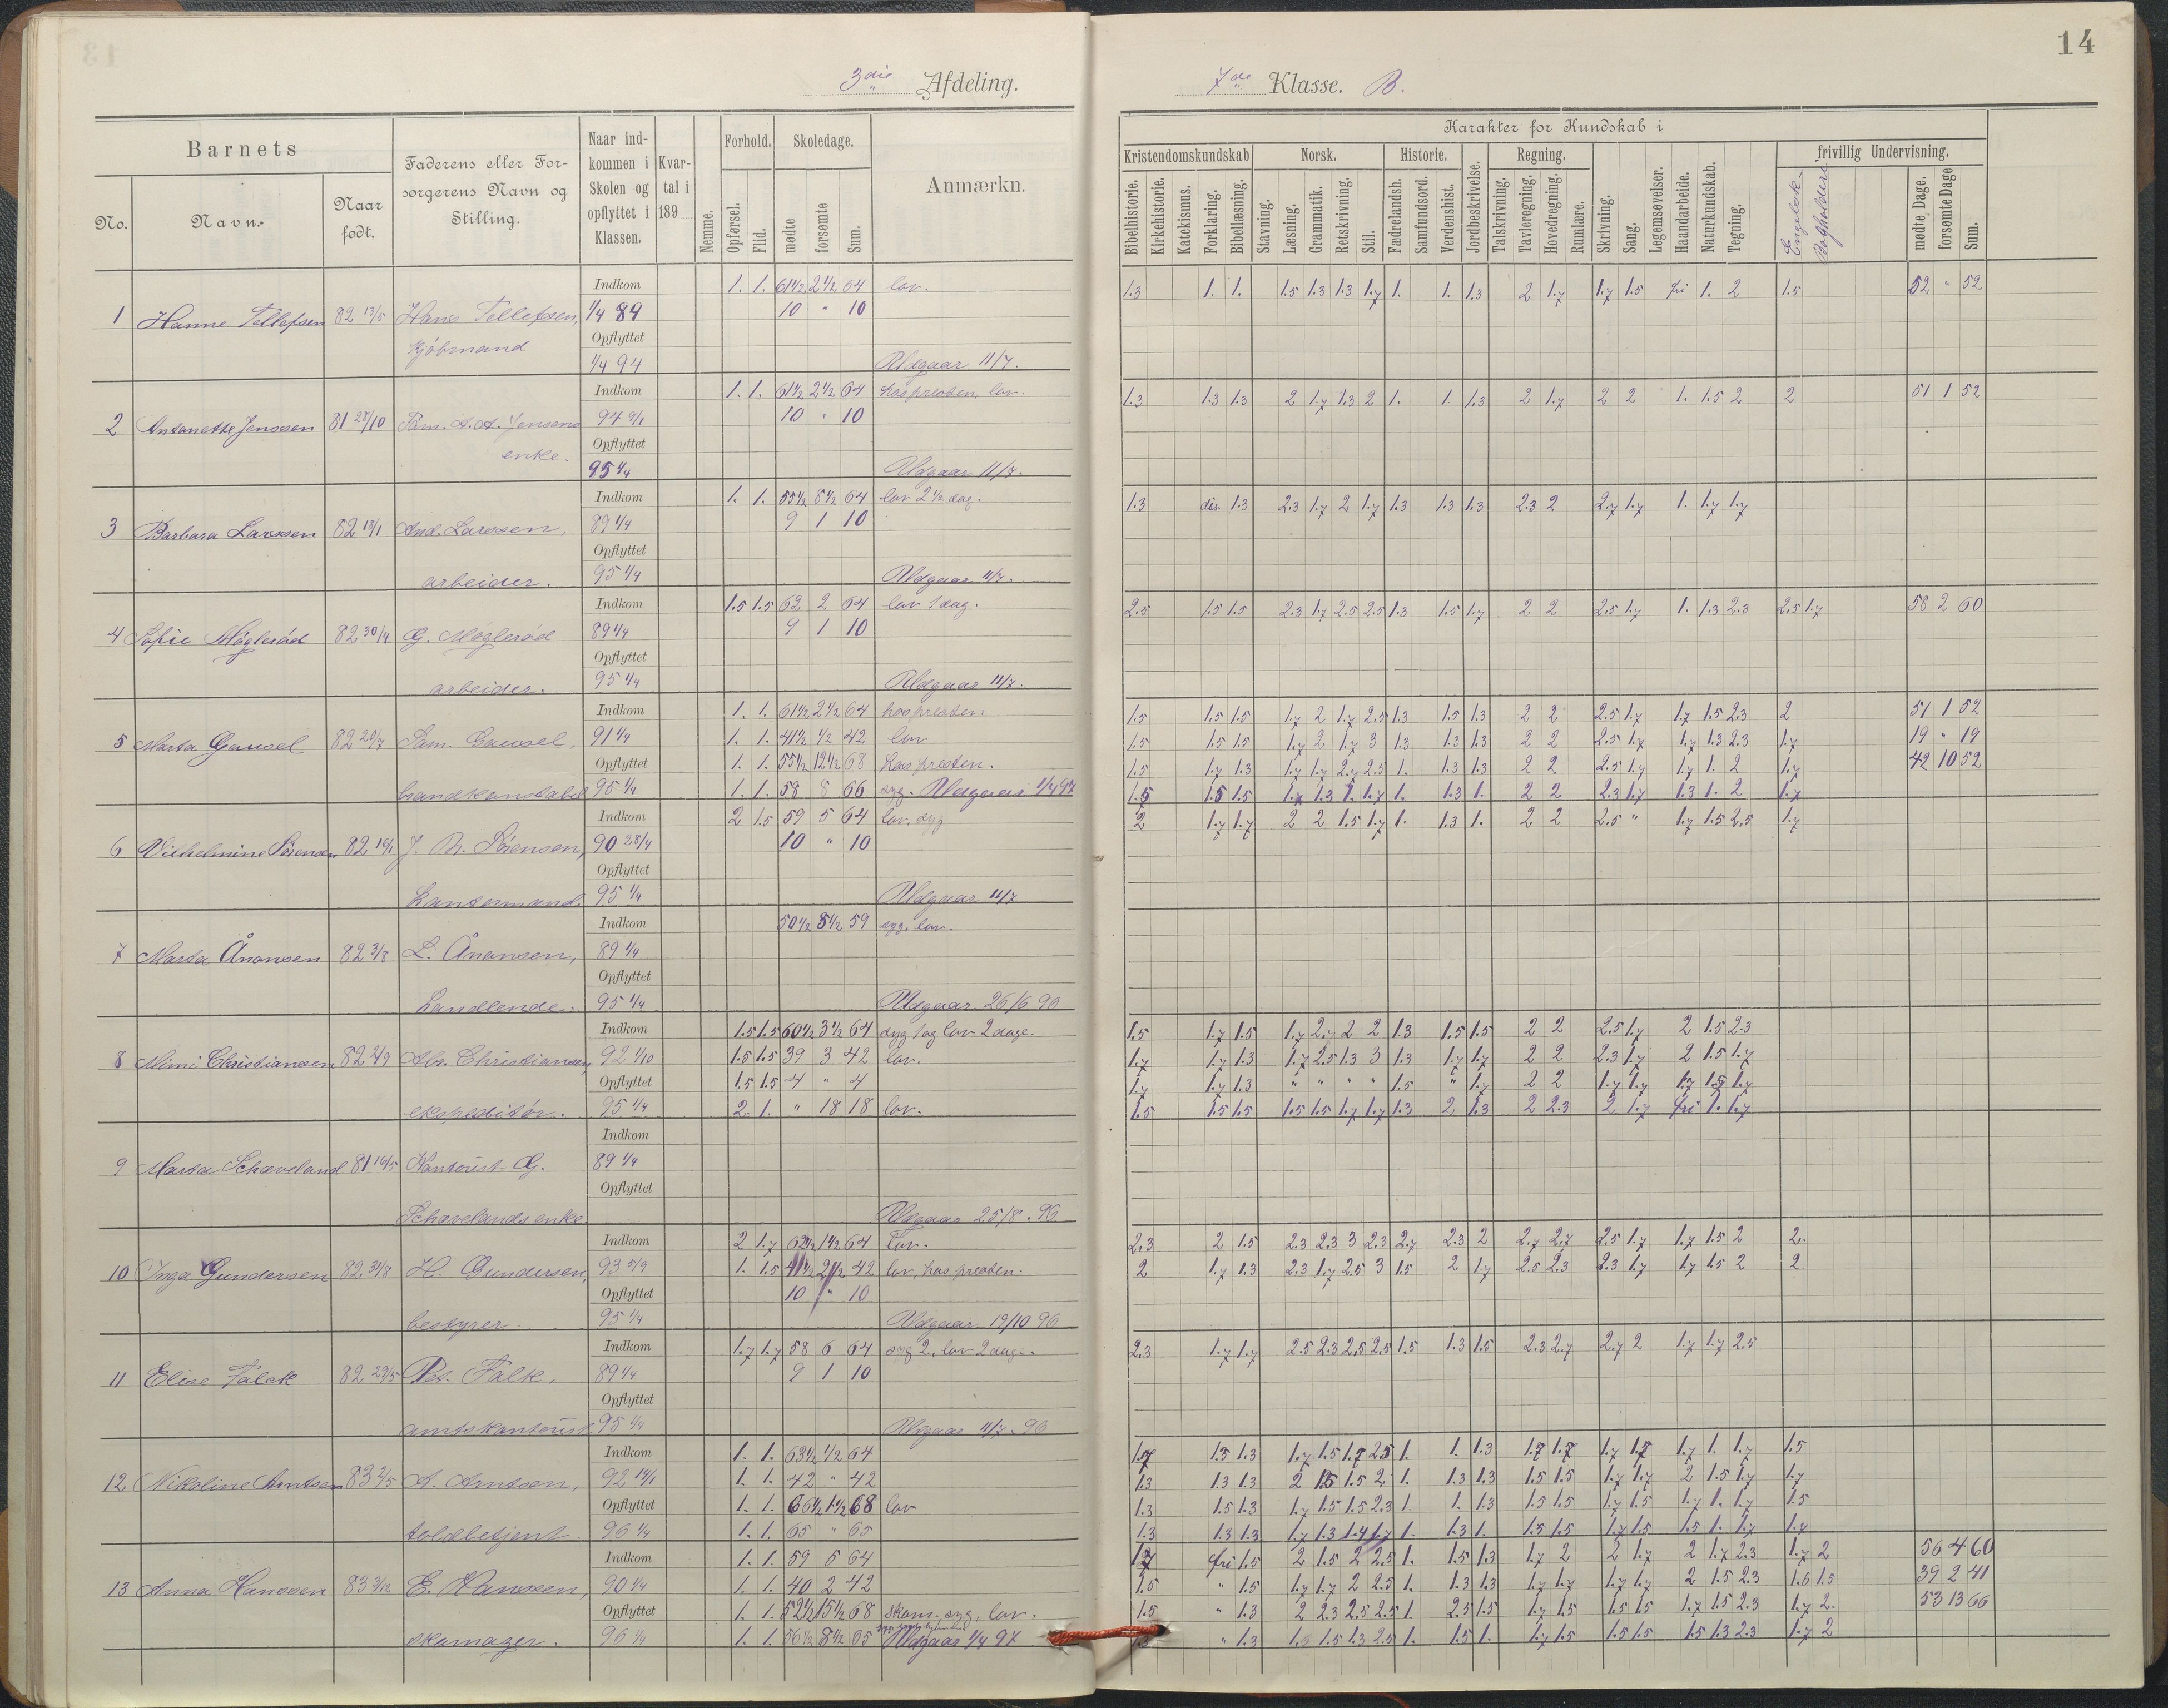 14
3die Afdeling.
7de Klasse. B.
Barnets
No.
Navn.
Naar født.
Faderens eller For-
sorgerens Navn og
Stilling.
Naar ind-
kommen i
Skolen og
opflyttet i
Klassen.
Kvar-
tal i
189
Nemme.
Forhold.
Opførsel.
Flid.
Skoledage.
mødte
forsømte
Sum.
Anmærkn.
Karakter for Kundskab i
Kristendomskundskab
Bibelhistorie.
Kirkehistorie.
Katekismus.
Forklaring.
Bibellæsning.
Norsk.
Stavning.
Læsning.
Grammatik.
Retskrivning.
Stil.
Historie.
Fædrelandsh.
Samfundsord.
Verdenshist.
Jordbeskrivelse.
Regning.
Talskrivning.
Tavleregning.
Hovedregning.
Rumlære.
Skrivning.
Sang.
Legemsøvelser.
Haandarbeide.
Naturkundskab.
Tegning.
frivillig Undervisning.
Engelsk.
Bogholderi
mødte Dage.
forsømte Dage
Sum.
Indkom 1. 1. 61½ 2½ 64 lov. 1.3 1. 1. 1.5 1.3 1.3 1.7 1. 1. 1.3 2 1.7 1.7 1.5 fri 1. 2 1.5 52 " 52
1 Hanne Tellefsen 82 13/5 Hans Tellefsen, 1/4 89 10 " 10
Kjøbmand Opflyttet
1/4 94 Udgaar 11/7.
Indkom 1. 1. 61½ 2½ 64 hos presten, lov. 1.3 1.3 1.3 2 1.7 1.3 2 1. 1. 1.3 2 1.7 2 2 1. 1.5 2 2 51 1 52
2 Antonette Jenssen 81 28/10 A. A. Jensens 94 10 " 10
enke. Opflyttet
95 1/4 Udgaar 11/7.
Indkom 1. 1. 55½ 8½ 64 lov 2½ dag. 1.3 dis. 1.3 2.3 1.7 2 1.7 1.3 1.3 1.3 2.3 2 2.7 1.7 1. 1.7 1.7
3 Barbara Larssen 82 18/1 And. Larssen, 89 1/4 9 1 10
Opflyttet
arbeider. 95 1/4 Udgaar 11/7.
Indkom 1.5 1.5 62 2 64 lov 1 dag. 2.5 1.5 1.5 2.3 1.7 2.5 2.5 1.3 1.5 1.7 2 2 2.5 1.7 1. 1.3 2.3 2.5 1.7 58 2 60
4 Sofie Møglerød 82 30/4 G. Møglerød 89 1/4 9 1 10
Opflyttet
arbeider. 95 1/4 Udgaar 11/7.
Indkom 1. 1. 61½ 2½ 64 hos presten 1.5 1.5 1.5 1.7 2 1.7 2.5 1.3 1.5 1.3 2 2 2.5 1.7 1.7 1.5 2.3 2 51 1 52
5 Marta Gausel 82 20/7 Sam. Gausel, 91 1/4 1. 1. 41½ ½ 42 lov 1.5 1.5 1.5 1.7 2 1.7 3 1.3 1.3 1.3 2 2 2.5 1.7 1.7 1.3 2.3 1.7 19 " 19
Opflyttet 1. 1. 55½ 12½ 68 hos presten. 1.5 1.7 1.3 1.7 1.7 2.7 2.5 1. 1.3 1.3 2 2 2.5 1.7 1.7 1. 2 1.7 42 10 52
brandkonstabel 95 1/4 1. 1. 58 8 66 syg. Udgaar 1/4 97 1.5 1.5 1.5 1.7 1.3 1. 1.7 1. 1.3 1. 2 2 2.3 1.7 1.3 1. 2 1.7
Indkom 2 1.5 59 5 64 lov. syg 2 1.7 1.7 2 2 1.5 1.7 1. 1.3 1. 2 2 2.5 " 1.7 1.5 2,5 1.7
6 Vilhelmine Sørensen 82 16/1 J. N. Sørensen, 90 28/4 10 " 10
Opflyttet
95 1/4 Udgaar 11/7
Indkom 50½ 8½ 59 syg. lov.
7 Marta Ånonsen 82 3/8 L. Ånonsen, 89 1/4
Opflyttet
Handlende. 95 1/4 Udgaar 26/6 96
Indkom 1.5 1.5 60½ 3½ 64 syg 1 og lov 2 dage. 1.5 1.7 1.5 1.7 2.7 2 2 1.3 1.5 1.5 2 2 2.5 1.7 2 1.5 2.3
8 Mimi Christiansen 82 2/9 Christiansen, 92 1/10 1.5 1.5 39 3 42 lov. 1.7 1.7 1.3 1.7 2.5 1.3 3 1.3 1.7 1.7 2 2 2.3 1.7 2 1.5 1.7
Opflyttet 1.5 1.5 4 " 4 1.7 1.7 1.3 " " " " 1.5 " 1.7 2 2 1.7 1.7 1.7 1.5 1.7
ekspeditør. 95 1/4 2. 1. " 18 18 lov. 1.5 1.5 1.5 1.5 1.5 1.7 1.7 1.3 2 1.3 2 2.3 2 1.7 fri 1. 1.7
Indkom
9 Marta Schaveland 81 16/5 Kontorist G. 89 1/4
Opflyttet
Schavelands enke. Udgaar 25/8. 96
Indkom 2 1.7 62½ 1½ 64 lov. 2.3 2 1.5 2.3 2.3 3 2.3 2.7 2.3 2 2.7 2.7 2.5 1.7 1.7 1.5 2 2.
10 Inga Gundersen 82 31/8 H. Gundersen, 93 1. 1.5 41½ 2½ 42 lov, hos presten. 2 1.7 1.3 2.3 1.7 2.5 3 1.5 2 1.7 2.5 2.3 2.3 1.7 1.7 1.5 2 2.
Opflyttet 10 " 10
bestyrer. 95 1/4 Udgaar 19/10 96
Indkom 1.7 1.7 58 6 64 syg 2, lov 2 dage. 2.3 1.7 1.7 2.5 2.3 2,5 2.5 1.5 1.3 1.5 2.3 2.7 2.7 2 1.7 1.7 2.5
11 Elise Falck 82 29/5 Pet. Falk, 89 1/4 9 1 10
Opflyttet
amtskontorist 95 1/4 Udgaar 11/7. 96
Indkom 1. 1. 63½ ½ 64 1.7 1.5 1.3 1.7 1.5 1.7 2.5 1. 1. 1.3 1.7 1.7 1.7 1.7 1.7 1. 1.7 1.5
12 Nikoline Arntsen 83 2/5 A. Arntsen, 92 19/1 1. 1. 42 " 42 1.3 1.3 1.3 2 1.5 1.5 2 1. 1.3 1.3 1.5 1.5 1.7 1.7 2 1.5 1.7 1.7
Opflyttet 1. 1. 66½ 1½ 68 lov 1.3 1.5 1.3 1.7 1.5 1.5 2.3 1. 1. 1.3 1.5 1.5 1.7 1.5 1.7 1. 1.7 1.5
toldbetjent. 96 1/4 1. 1. 65 " 65 1.3 1.3 1.3 1.7 1.3 1.4 1.7 1. 1.3 1. 1.5 1.5 1.7 1.5 1.5 1. 1.7 1.7
Indkom 1. 1. 59 5 64 1.7 fri 1.5 2 1.5 2 2.5 1. 1.5 1.3 1.7 2 2 1.7 2 1.7 2.3 1.7 2 56 4 60
13 Anna Hanssen 83 3/12 E. Hanssen, 90 1/4 1. 1. 40 2 42 1.5 " 1.5 1.7 1.7 2 2.5 1. 1.3 1.3 1.7 1.7 1.7 1.7 2 1.5 2.3 1.5 1.5 39 2 41
Opflyttet 1. 1. 52½ 15½ 68 skam. syg, lov. 1.5 " 1.3 2 2.3 2.5 2.5 1. 2.5 1.5 1.7 1.5 1.5 1.5 1.7 1.5 2.3 1.7 2. 53 13 66
skomager. 96 1/4 1. 1. 56½ 8½ 65 Udgaar 1/4 97 1.3 " 1.3 1.5 1.5 1.3 2.5 1. 1.5 1. 1.7 1.5 1.5 1.5 1.5 1.3 2.3 1.7 2